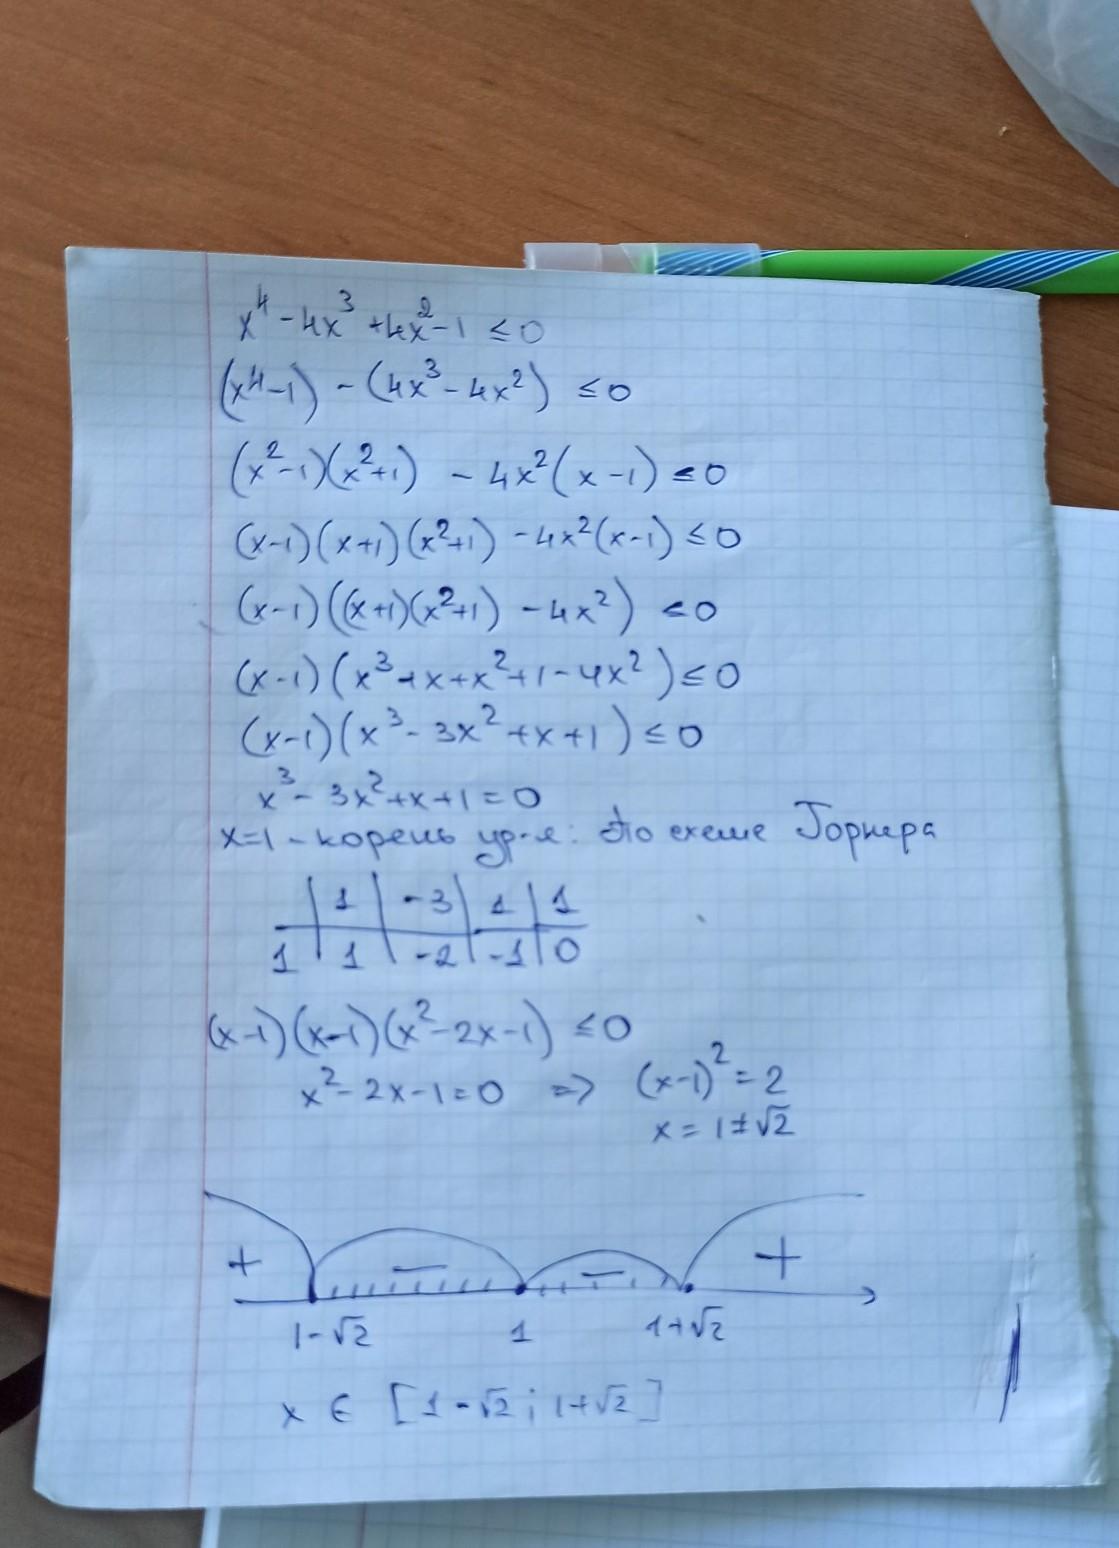 x⁴ - 4x³ + 4x² - 1 ≤ 0
(x⁴-1) - (4x³ - 4x²) ≤ 0
(x²-1)(x²+1) - 4x²(x-1) ≤ 0
(x-1)(x+1)(x²+1) - 4x²(x-1) ≤ 0
(x-1)((x+1)(x²+1) - 4x²) ≤ 0
(x-1)(x³+x+x²+1-4x²) ≤ 0
(x-1)(x³-3x²+x+1) ≤ 0
x³-3x²+x+1=0
x=1 - корень ур-я: По схеме Горнера
| 1 | -3 | 1 | 1
1 | 1 | -2 | -1 | 0
(x-1)(x-1)(x²-2x-1) ≤ 0
x²-2x-1=0 => (x-1)²=2
x = 1±√2
+ − − +
1-√2 1 1+√2
x ∈ [1-√2; 1+√2]